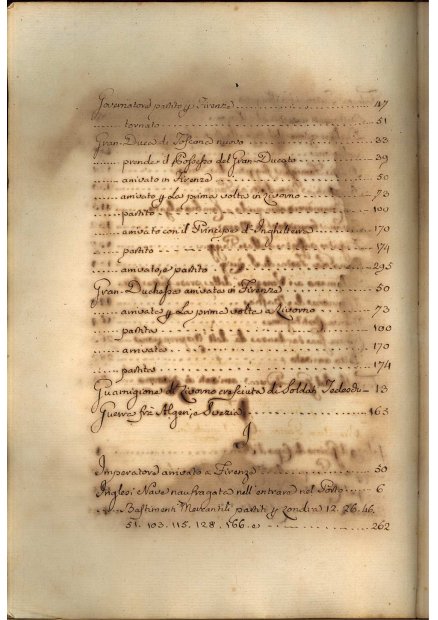 Governatore partito p Firenze 47
tornato 51
Gran-Duca di Toscana nuovo 33
prende il Possesso del Gran-Ducato 39
arrivato in Firenze 50
arrivato p la prima volta in Livorno 73
partito 100
arrivato con il Principe d'Inghilterra 170
partito 174
arrivato, e partito 295
Gran-Duchessa arrivata in Firenze 50
arrivata p la prima volta a Livorno 73
partita 100
arrivata 170
partita 174
Guarnigione di Livorno cresciuta di Soldati Tedeschi 13
Guerra frà Algeri, e Svezia 163
I
Imperatore arrivato a Firenze 50
Inglesi Nave naufragata nell'entrare nel Porto 6
Bastimenti Mercantili partiti p Londra 12. 26. 46.
51. 103. 115. 128. 166. e 262